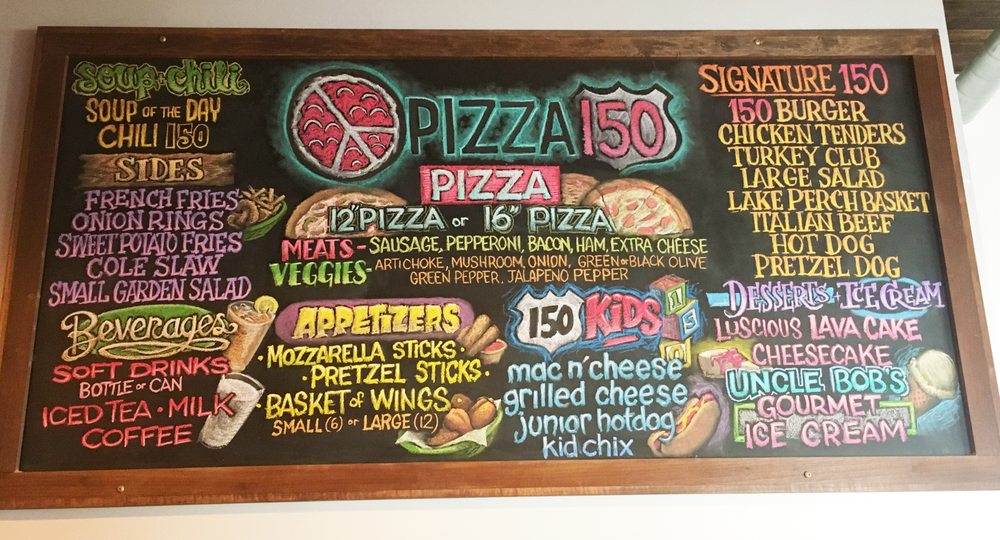 SOUP + CHILI
SOUP OF THE DAY
CHILI 150
SIDES
FRENCH FRIES
ONION RINGS
SWEET POTATO FRIES
COLE SLAW
SMALL GARDEN SALAD
BEVERAGES
SOFT DRINKS
BOTTLE OR CAN
ICED TEA • MILK
COFFEE
PIZZA 150
PIZZA
12" PIZZA or 16" PIZZA
MEATS - SAUSAGE, PEPPERONI, BACON, HAM, EXTRA CHEESE
VEGGIES - ARTICHOKE, MUSHROOM, ONION, GREEN OR BLACK OLIVE
GREEN PEPPER, JALAPENO PEPPER
APPETIZERS
• MOZZARELLA STICKS •
• PRETZEL STICKS •
• BASKET of WINGS
SMALL (6) or LARGE (12)
150 KIDS
1
5
0
mac n' cheese
grilled cheese
junior hotdog
kid chix
SIGNATURE 150
150 BURGER
CHICKEN TENDERS
TURKEY CLUB
LARGE SALAD
LAKE PERCH BASKET
ITALIAN BEEF
HOT DOG
PRETZEL DOG
DESSERTS + ICE CREAM
LUSCIOUS LAVA CAKE
CHEESECAKE
UNCLE BOB'S
GOURMET
ICE CREAM